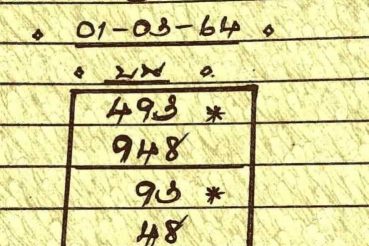 01-03-64
บน
493 *
948
93 *
48